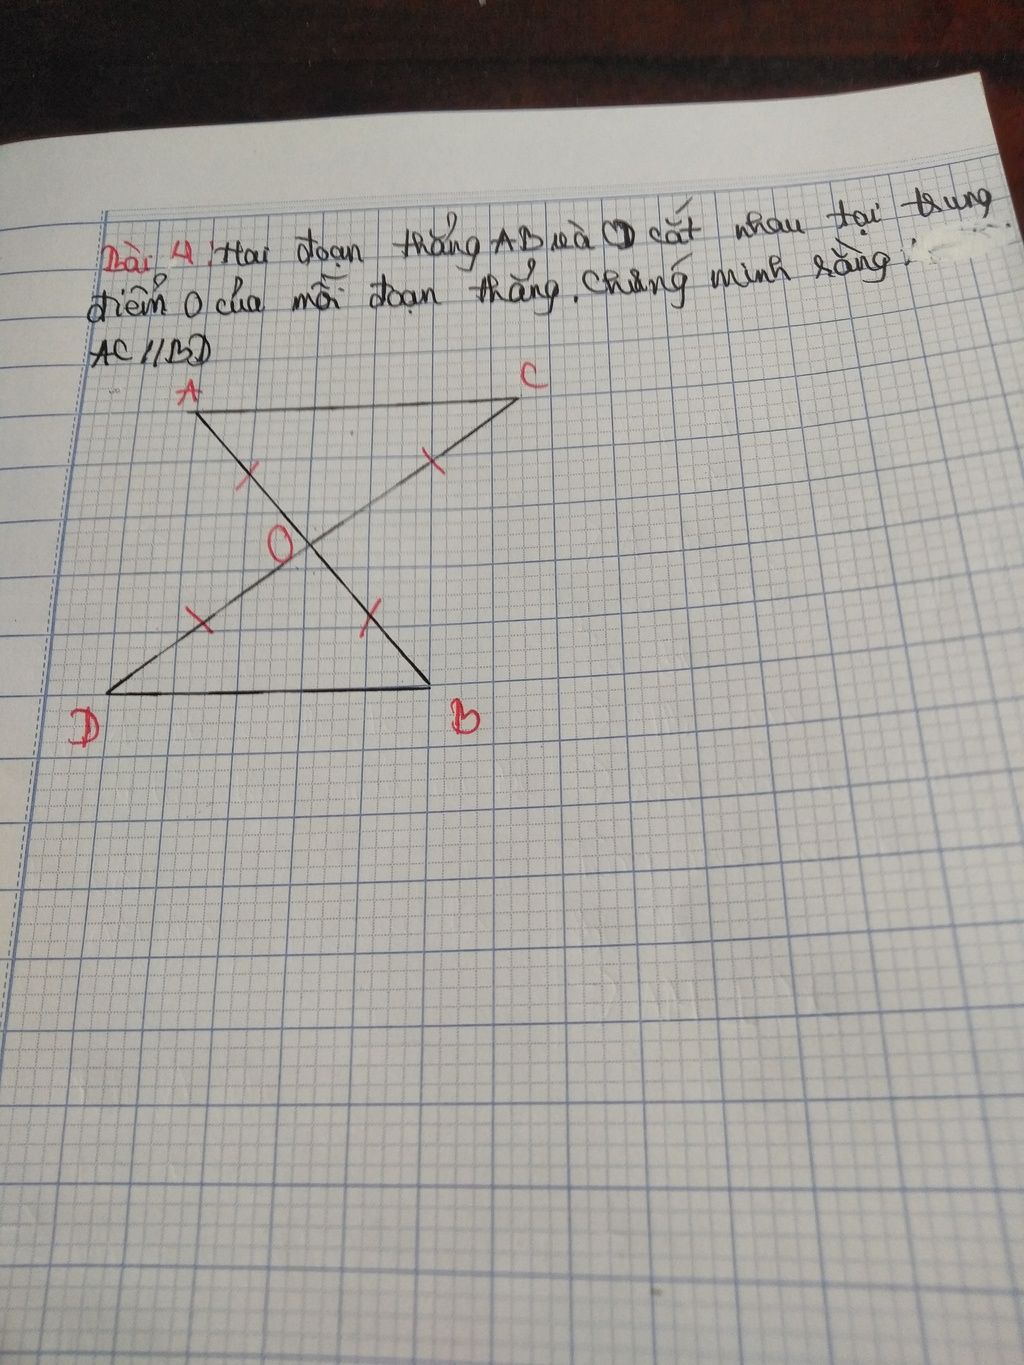 Bài 4: Hai đoạn thẳng AB và CD cắt nhau tại trung
điểm O của mỗi đoạn thẳng. Chứng minh rằng:
AC//BD
A
C
O
D
B